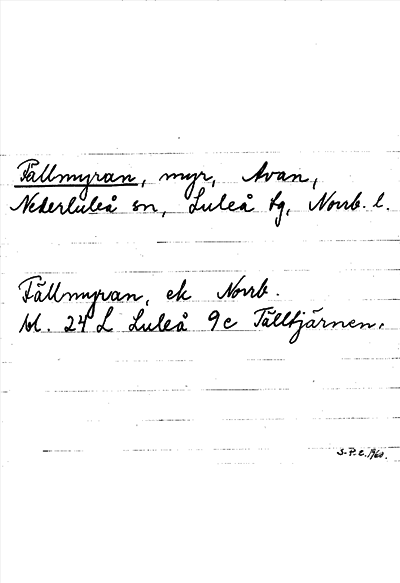 Fällmyran, myr, Avan,
Nederluleå sn, Luleå tg, Norrb. l.
Fällmyran, ek Norrb.
bl. 24 L Luleå 9c Tälltjärnen.
S.P.C. 1960.